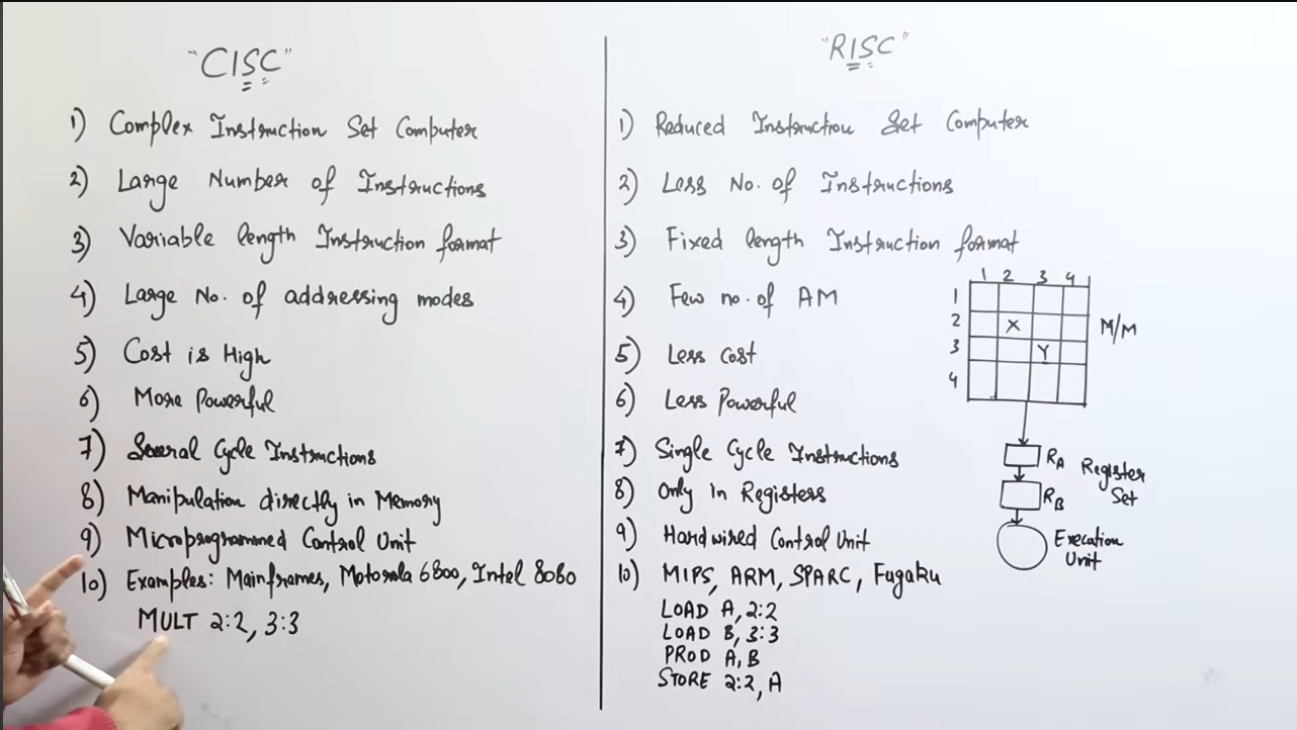 "CISC"
1) Complex Instruction Set Computer
2) Large Number of Instructions
3) Variable length Instruction format
4) Large No. of addressing modes
5) Cost is High
6) More Powerful
7) Several Cycle Instructions
8) Manipulation directly in Memory
9) Microprogrammed Control Unit
10) Examples: Mainframes, Motorola 6800, Intel 8080
MULT 2:2, 3:3
"RISC"
1) Reduced Instruction Set Computer
2) Less No. of Instructions
3) Fixed length Instruction format
4) Few no. of AM
5) Less cost
6) Less Powerful
7) Single Cycle Instructions
8) Only in Registers
9) Hardwired Control Unit
10) MIPS, ARM, SPARC, Fugaku
LOAD A, 2:2
LOAD B, 3:3
PROD A, B
STORE 2:2, A
1 2 3 4
1
2 X
3 Y
4
M/M
RA
RB
Register
Set
Execution
Unit